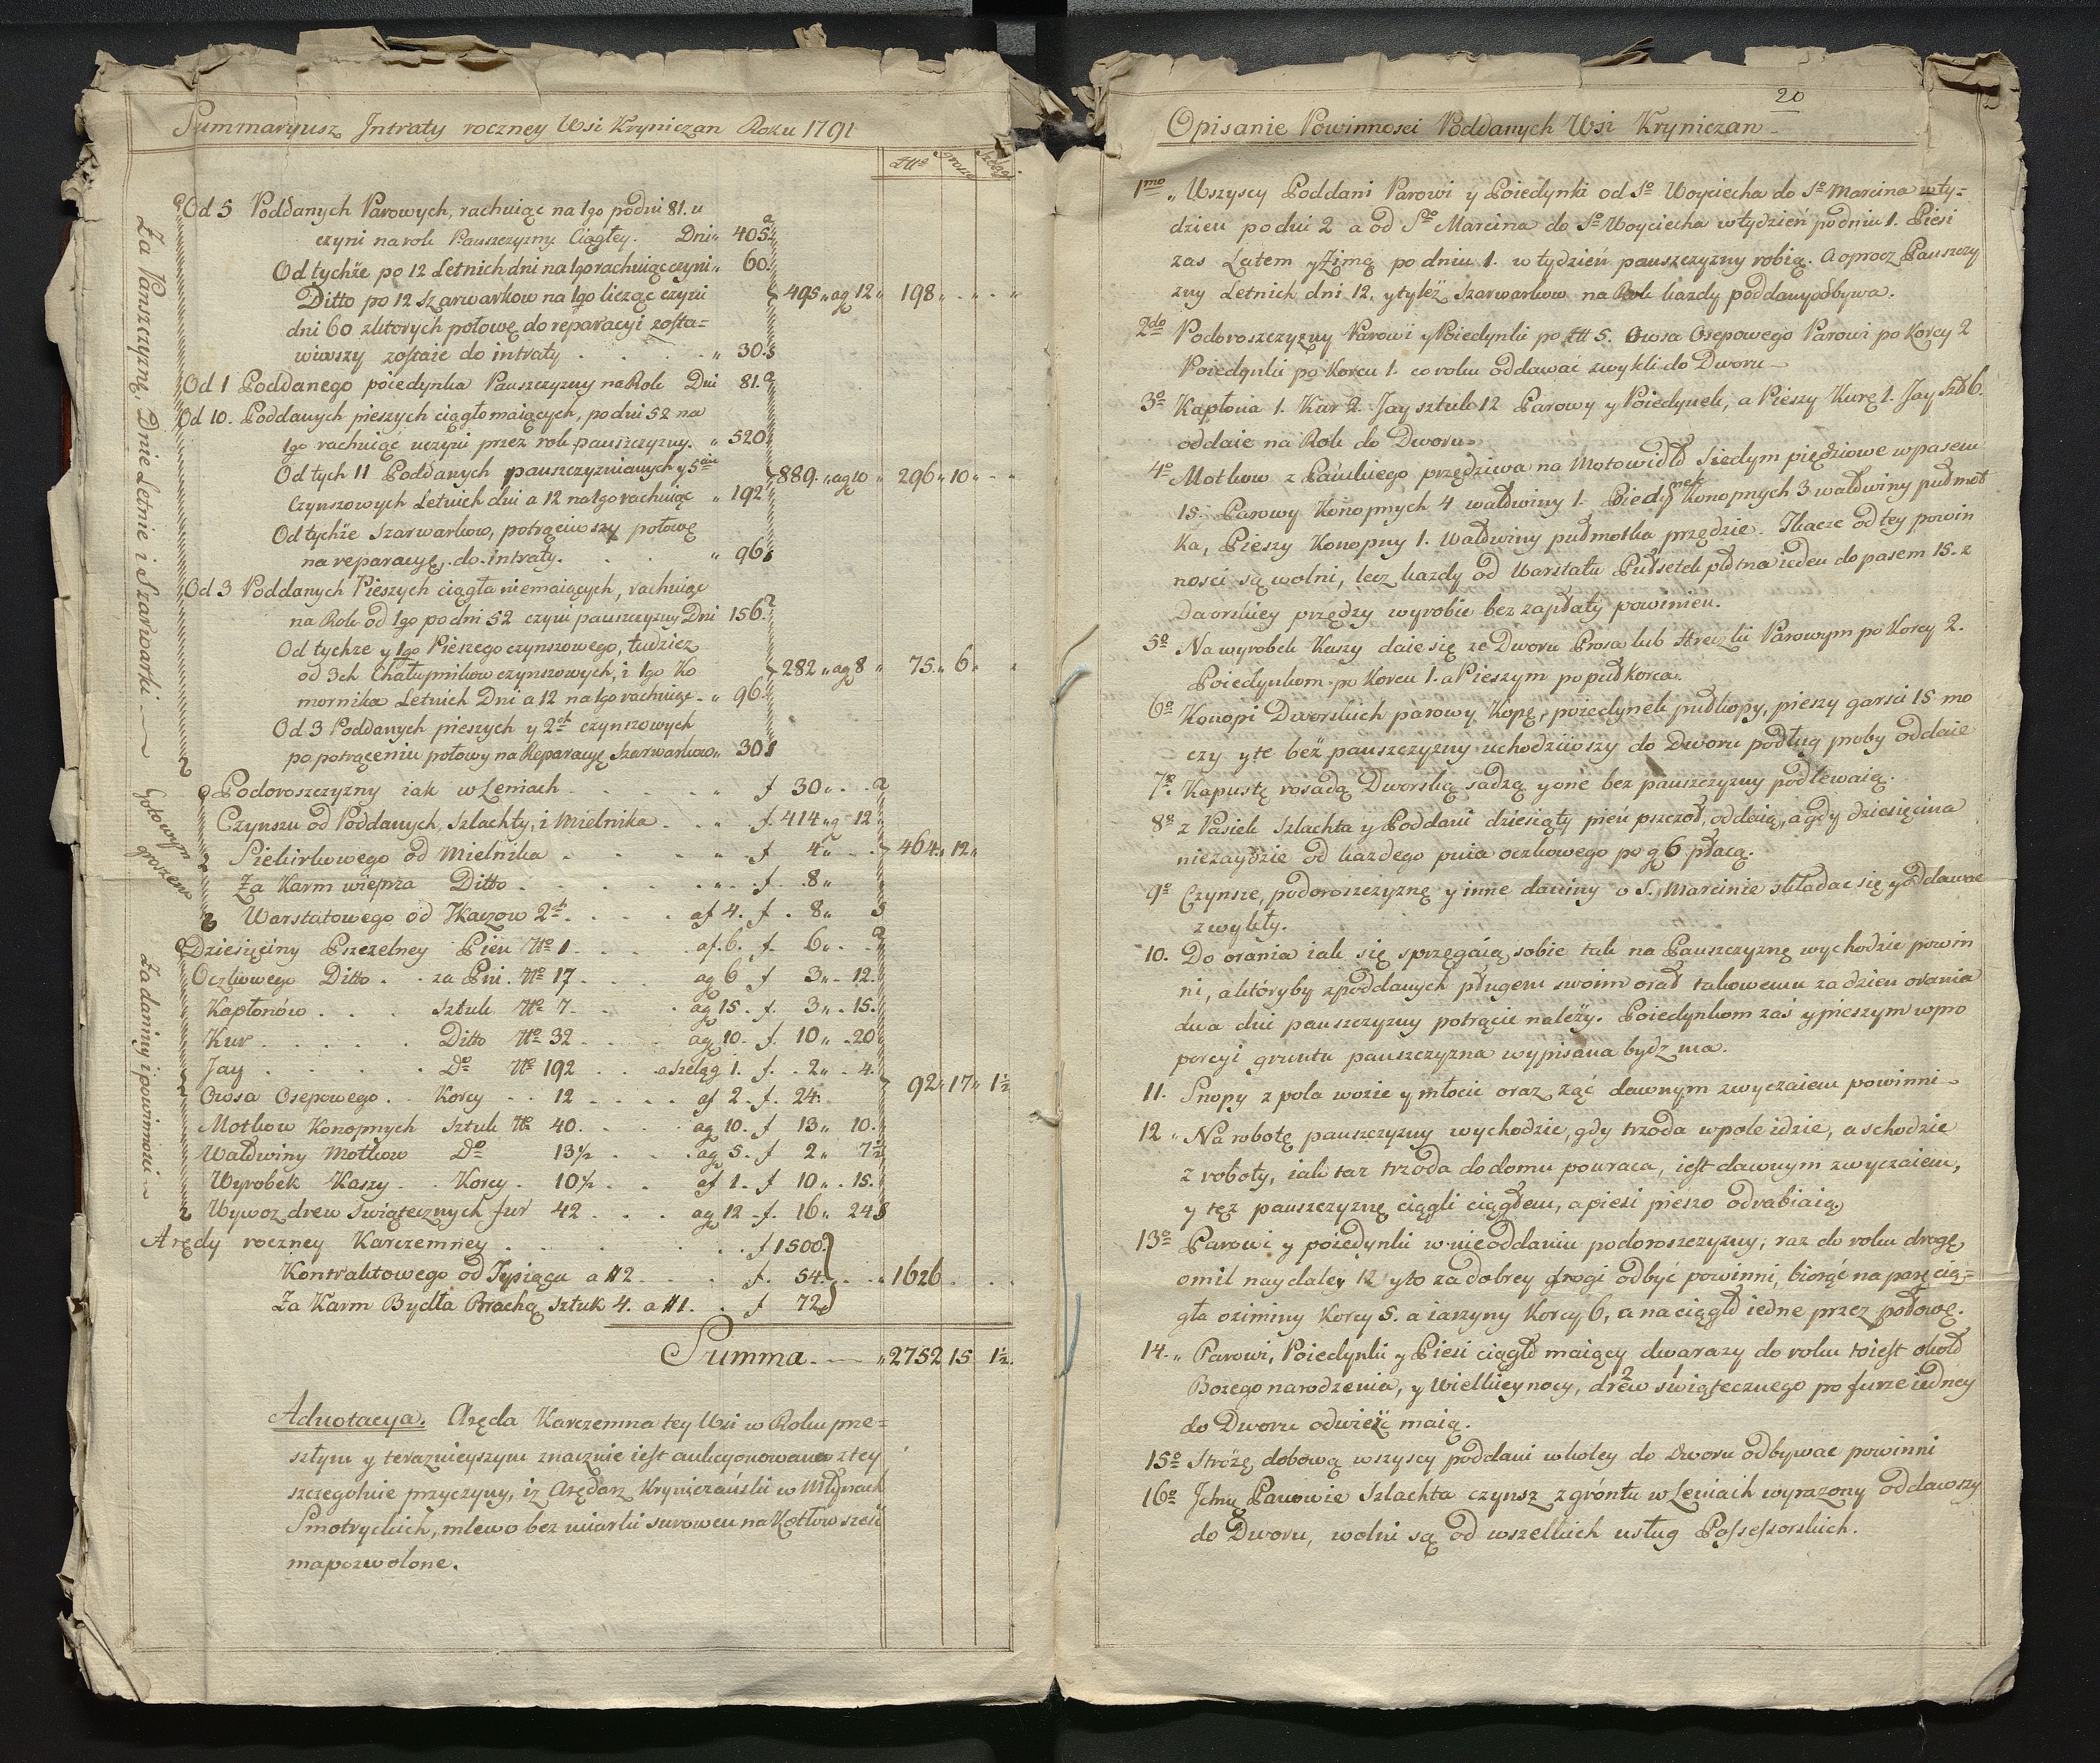 Summaryusz Intraty roczney Wsi Kryniczan Roku 1791
Złte Grosze Szelągi
Za Pańszczyznę, Dnie Letnie i Szarwarki
Od 5 Poddanych Parowych, rachuiąc na 1go po dni 81. u
czyni na rok Pauszczyzny Ciągłey. Dni 405
Od tychże po 12 Letnich dni na 1go rachuiąc czyni 60.
Ditto po 12 Szarwarkow na 1go licząc czyni 495 ag 12 198
dni 60 z ktorych połowę do reparacyi zosta=
wiwszy zostaie do intraty . . . . 30.
Od 1 Poddanego poiedynka Pauszczyzny na Rok Dni 81.
Od 10. Poddanych pieszych ciągło maiących, po dni 52 na
1go rachuiąc uczyni przez rok pauszczyzny. 520
Od tych 11 Poddanych pauszczyznianych y 5ciu 889. ag 10 296 10
Czynszowych Letnich dni a 12 na 1go rachuiąc 192
Od tychże Szarwarkow, potrąciwszy połowę
na reparacyę, do intraty. 96
Od 3 Poddanych Pieszych ciągła niemaiących, rachuiąc
na Rok od 1go po dni 52 czyni pauszczyzny Dni 156.
Od tychże y 1go Pieszego czynszowego, tudzież
od 3ch Chałupnikow czynszowych, i 1go Ko 282 ag 8 75. 6
mornika Letnich Dni a 12 na 1go rachuiąc 96
Od 3 Poddanych pieszych y 2ch czynszowych
po potrąceniu połowy na Reparacyę Szarwarkow 30
Gotowym groszem
Podoroszczyzny iak w Leniach . . . . f 30
Czynszu od Poddanych, Szlachty, i Mielnika . . f. 414 g 12
Siekirkowego od Mielnika . . . . f 4 464. 12
Za Karm wieprza Ditto . . . . f. 8
Warstatowego od Tkaczow 2ch. . . . af 4. f. 8
Za daniny i powinności
Dziesięciny Pszczelney Pien No 1 . . . af. 6. f. 6
Oczkowego Ditto . . za Pni. No 17 . . ag 6 f 3 . 12.
Kapłonów . . . Sztuk No 7 . . ag 15. f. 3 . 15.
Kur . . . . Ditto No 32 . . ag 10. f. 10 . 20
Jay . . . . Do No 192 . . a Szeląg 1. f. 2 . 4.
Owsa Osepowego . . Korcy . . 12 . . . af 2. f. 24. 92 17 1½
Motkow Konopnych Sztuk No 40. . . ag 10. f 13 10.
Wałdwiny Motkow Do 13½ . . ag 5. f 2 7½
Wyrobek Kaszy . . Korcy . 10½ . . af 1. f 10 . 15.
Wywoz drew Swiątecznych fur 42 . . . ag 12 f. 16 24
Arędy roczney Karczemney . . . . f 1500.
Kontraktowego od Tysiąca a # 2 . . . f. 54. 1626
Za Karm Bydła Brachą Sztuk 4. a # 1. . f 72
Summa. 2752 15 1½.
Adnotacya. Aręda Karczemna tey Wsi w Roku prze=
szłym y teraznieyszym znacznie iest aukcyonowana z tey
szczegolnie przyczyny, iz Arędarz Kryniczański w Młynach
Smotryckich, mlewo bez miarki surowcu na Kotłow sześć
ma pozwolone.
20
Opisanie Powinnosci Poddanych Wsi Kryniczan
1mo Wszyscy Poddani Parowi y Poiedynki od So Woyciecha do So Marcina w ty=
dzien po dni 2 a od So Marcina do So Woyciecha w tydzień po dniu 1. Piesi
zas Latem y Zimą po dniu 1. w tydzień pauszczyzny robią. A oprocz Pauszczy
zny Letnich dni 12. y tyleż Szarwarkow na Rok kazdy poddany odbywa.
2do Podoroszczyzny Parowi y Poiedynki po Złł 5. Owsa Osepowego Parowi po Korcy 2
Poiedynki po Korcu 1. co roku oddawać zwykli do Dworu
3o Kapłona 1. Kur 2. Jay sztuk 12 Parowy y Poiedynek, a Pieszy Kurę 1. Jay Szt 6.
oddaie na Rok do Dworu
4o Motkow z Pańskiego przędziwa na Motowidło Siedym piędziowe w pasem
15. Parowy Konopnych 4 wałdwiny 1. Poiedynek Konopnych 3 wałdwiny puł mot
ka, Pieszy Konopny 1. Wałdwiny puł motka przędzie. Tkacze od tey powin
nosci są wolni, lecz kazdy od Warstatu Pułsetek płótna ieden do pasem 15. z
Dworskiey przędzy wyrobić bez zapłaty powinien.
5o Na wyrobek Kaszy daie się ze Dworu Prosa lub Hreczki Parowym po Korcy 2.
Poiedynkom po Korcu 1. a Pieszym po puł korca.
6o Konopi Dworskich parowy Kopę, poiedynek puł kopy, pieszy garsci 15 mo
czy y te bez pauszczyzny uchodziwszy do Dworu podług proby oddaie
7o. Kapustę rosadą Dworską sadzą y one bez pauszczyzny podlewaią.
8o z Pasiek Szlachta y Poddani dziesiąty pień pszczoł, oddaią, a gdy dziesięcina
niezaydzie od kazdego pnia oczkowego po g 6 płacą.
9o Czynsze, podoroszczyznę y inne daniny o S. Marcinie składać się y oddawać
zwykły.
10. Do orania iak się sprzęgaią sobie tak na Pauszczyznę wychodzic powin
ni, a któryby z poddanych pługem swoim orał takowemu za dzien orania
dwa dni pauszczyzny potrącic należy. Poiedynkom zaś y pieszym w pro
porcyi gruntu pauszczyzna wypisana bydz ma.
11. Snopy z pola wozic y młocic oraz żąć dawnym zwyczaiem powinni
12 Na robotę pauszczyzny wychodzic, gdy trzoda w pole idzie, a schodzic
z roboty, iak taz trzoda do domu powraca, iest dawnym zwyczaiem,
y też pauszczyznę ciągli ciągłem, a piesi pieszo odrabiaią
13o Parowi y poiedynki w nieoddaniu podoroszczyzny, raz do roku drogę
o mil naydaley 12 y to za dobrey drogi odbyć powinni, biorąc na parę cią=
gła oziminy Korcy 5. a iarzyny Korcy 6, a na ciągło iedne przez połowę.
14. Parowi, Poiedynki y Piesi ciągło maiący dwa razy do roku toiest około
Bozego narodzenia, y Wielkieynocy, drew świątecznego po furze iedney
do Dworu odwieść maią.
15o Stróżę dobową wszyscy poddani w koley do Dworu odbywac powinni
16o Ichmę Panowie Szlachta czynsz z gróntu w Leniach wyrazony oddawszy
do Dworu, wolni są od wszelkich usług Possessorskich.